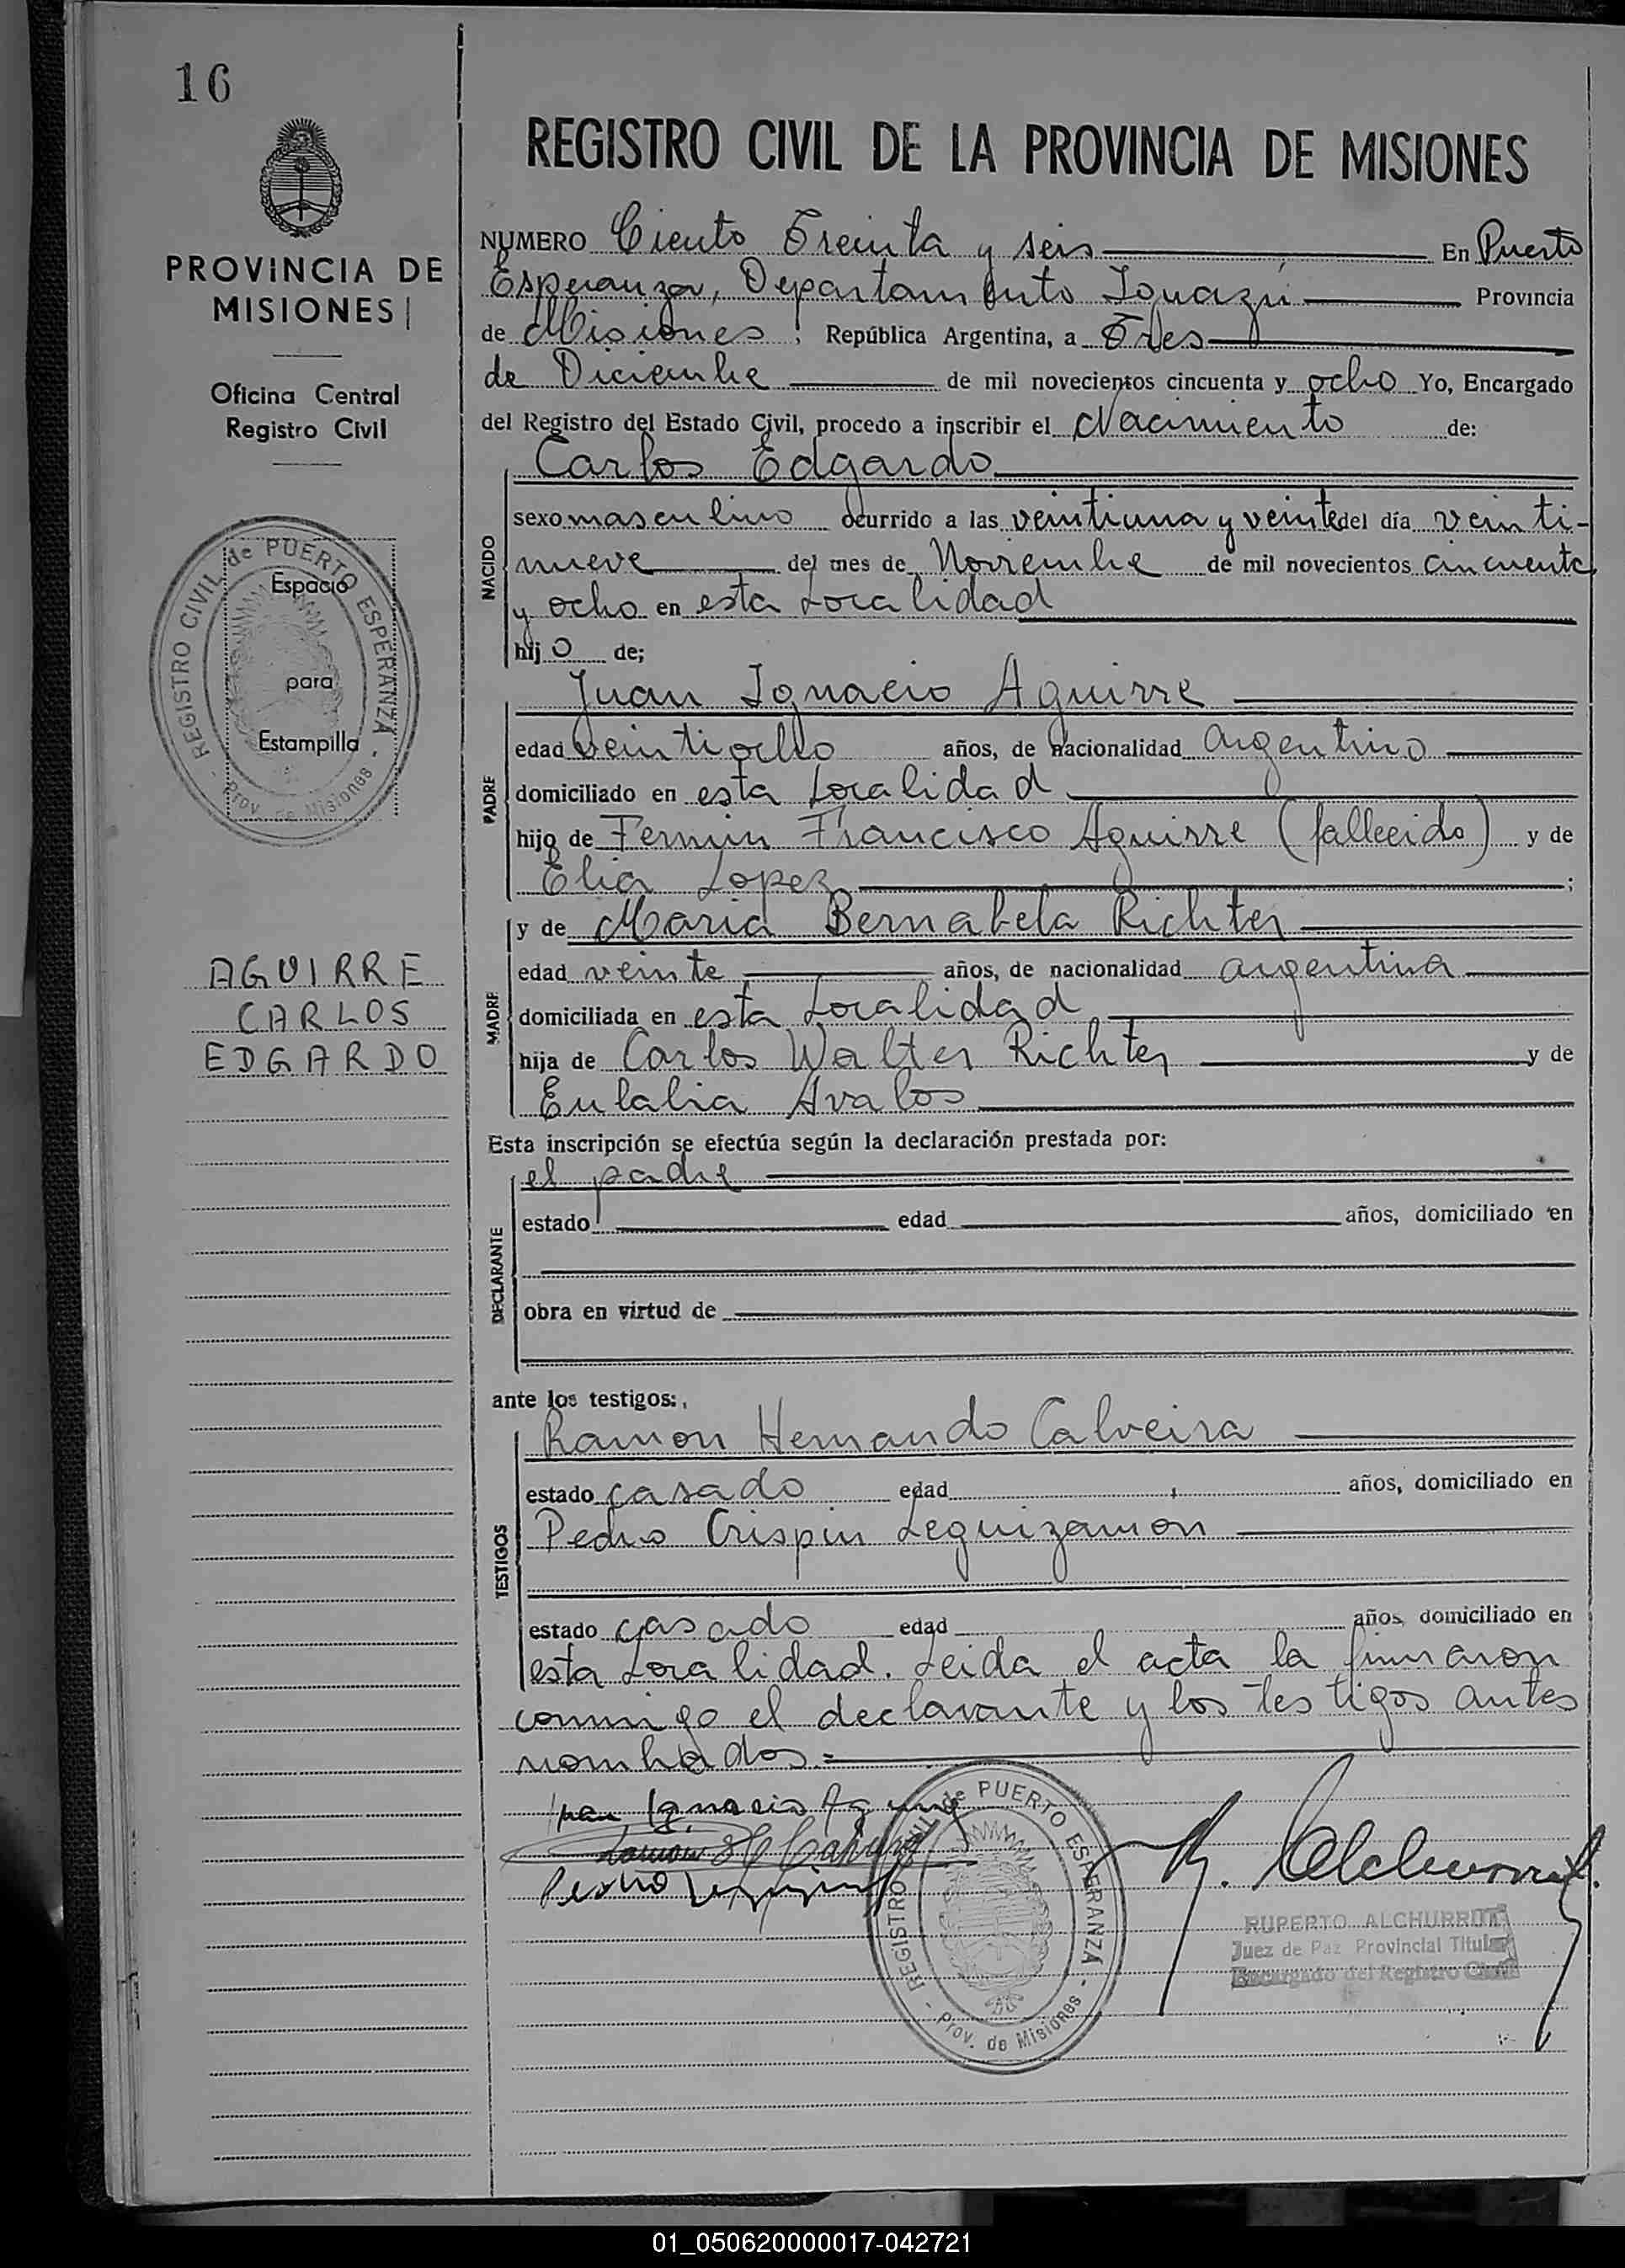 16
PROVINCIA DE
MISIONES
Oficina Central
Registro Civil
REGISTRO CIVIL de PUERTO ESPERANZA - Prov. de Misiones -
Espacio
para
Estampilla
AGUIRRE
CARLOS
EDGARDO
REGISTRO CIVIL DE LA PROVINCIA DE MISIONES
NUMERO Ciento Treinta y seis En Puerto
Esperanza, Departamento Iguazú Provincia
de Misiones, República Argentina, a Tres
de Diciembre de mil novecientos cincuenta y ocho Yo, Encargado
del Registro del Estado Civil, procedo a inscribir el Nacimiento de:
Carlos Edgardo
NACIDO
sexo masculino ocurrido a las veintiuna y veinte del día veinti-
nueve del mes de Noviembre de mil novecientos cincuenta
y ocho en esta Localidad
hijo de;
Juan Ignacio Aguirre
PADRE
edad veintiocho años, de nacionalidad argentino
domiciliado en esta Localidad
hijo de Fermin Francisco Aguirre (fallecido) y de
Elia Lopez ;
y de Maria Bernabela Richter
MADRE
edad veinte años, de nacionalidad argentina
domiciliada en esta Localidad
hija de Carlos Walter Richter y de
Eulalia Avalos
Esta inscripción se efectúa según la declaración prestada por:
el padre
DECLARANTE
estado edad años, domiciliado en
obra en virtud de
ante los testigos:
Ramon Hernando Calveira
TESTIGOS
estado casado edad años, domiciliado en
Pedro Crispin Leguizamon
estado casado edad años, domiciliado en
esta Localidad. Leida el acta la firmaron
conmigo el declarante y los testigos antes
nombrados.=
Juan Ignacio Aguirre
REGISTRO CIVIL de PUERTO ESPERANZA - Prov. de Misiones -
RUPERTO ALCHURRUT
Juez de Paz Provincial Titular
Encargado del Registro Civil
01_050620000017-042721